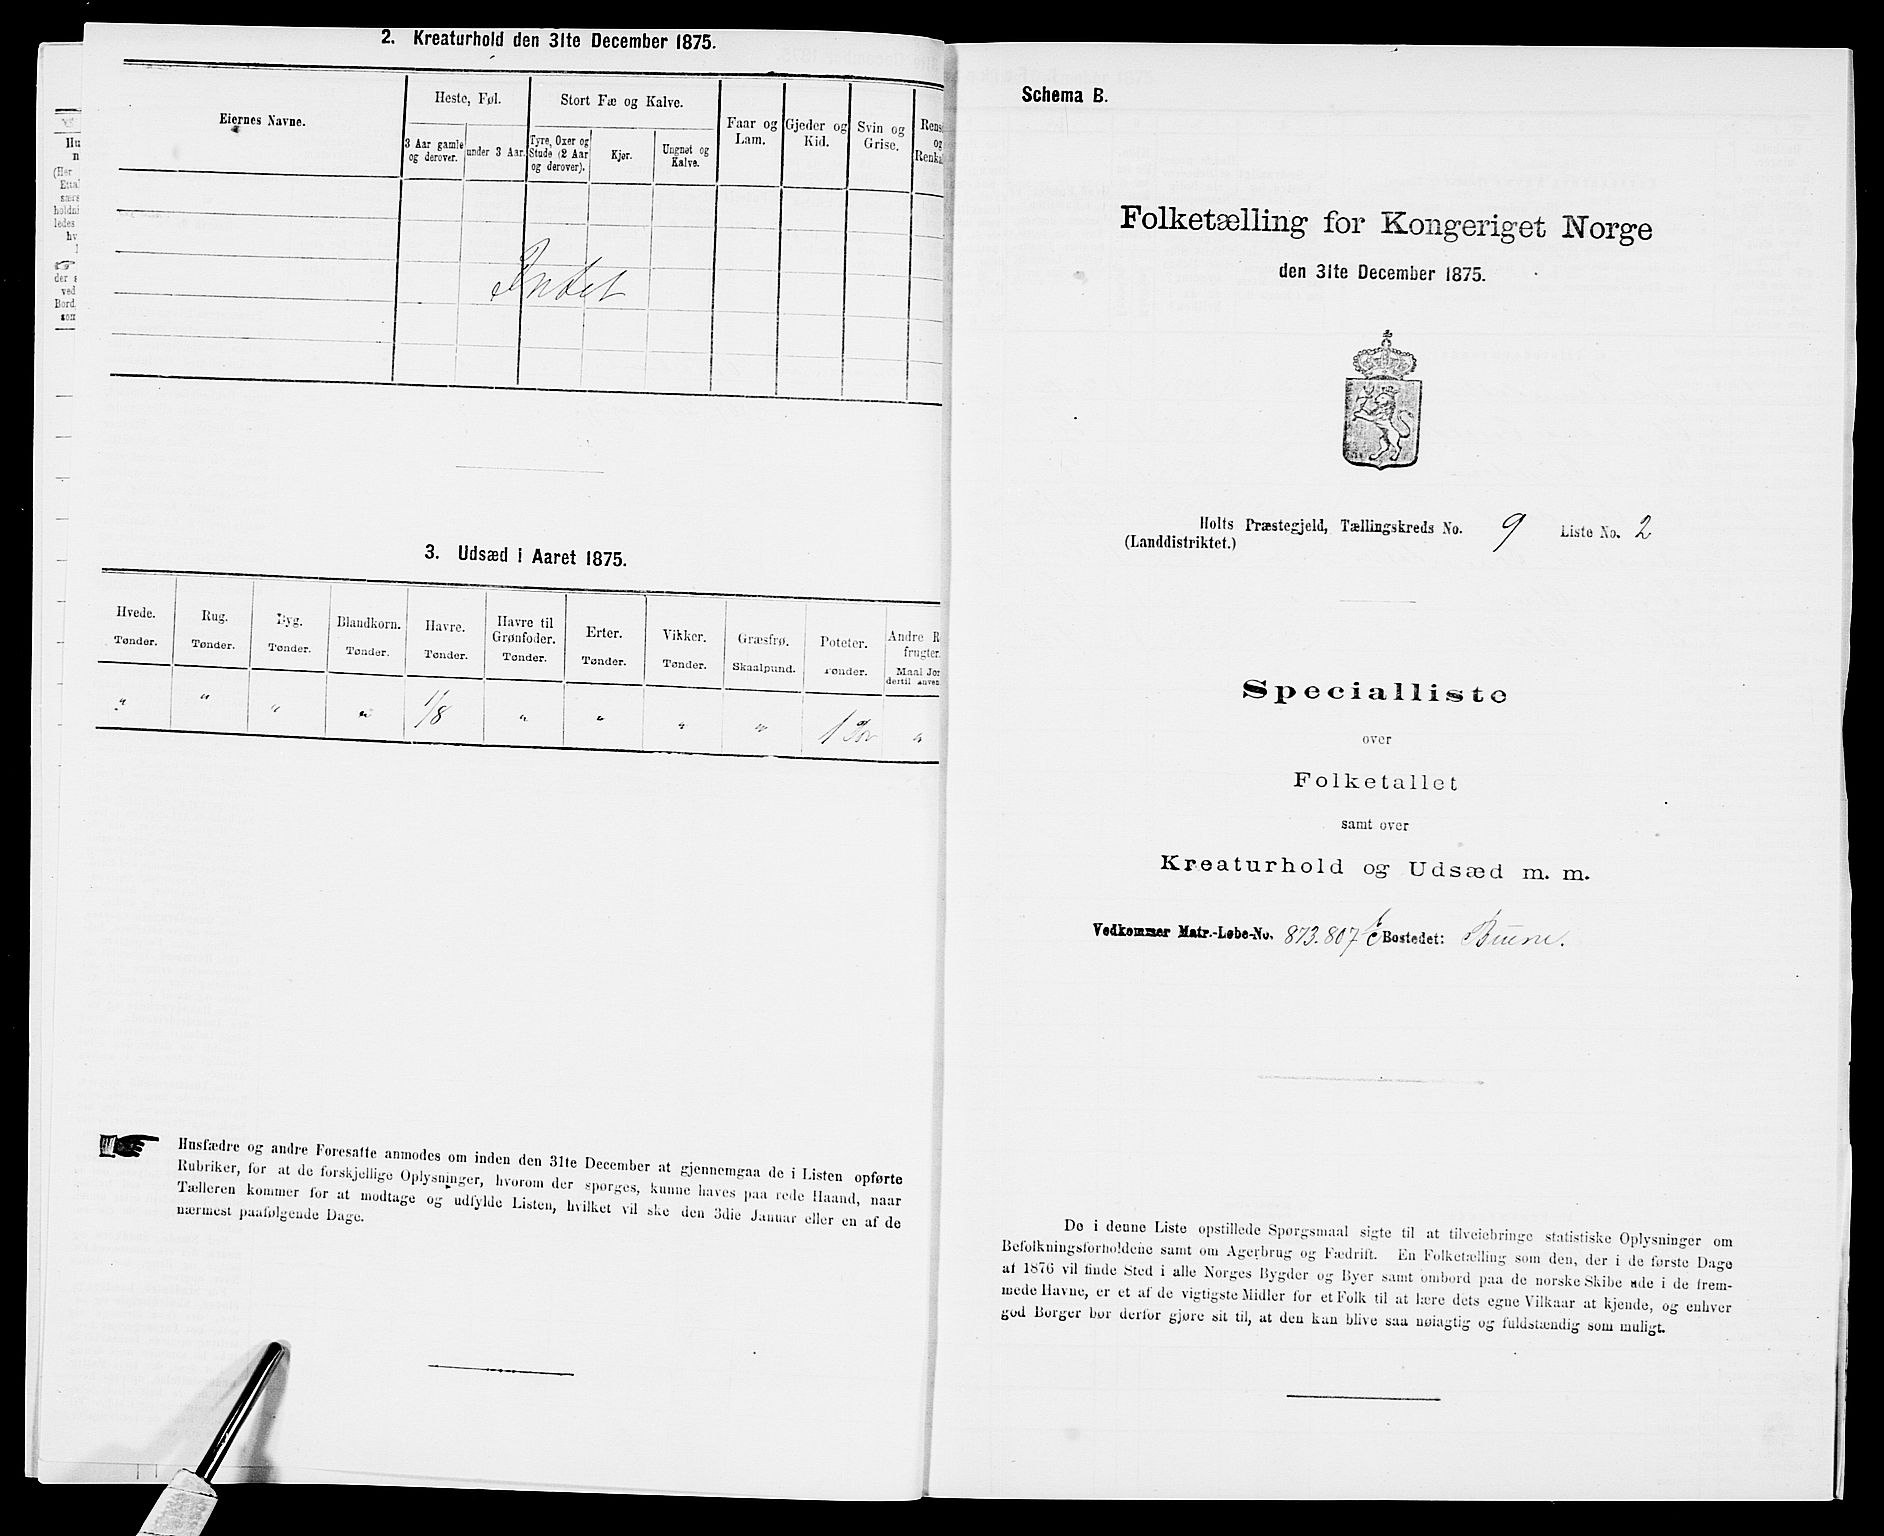 2. Kreaturhold den 31te December 1875.
Eiernes Navne.
Heste, Føl.
Stort Fæ og Kalve.
Faar og
Lam.
Gjeder og
Kid.
Svin og
Grise.
Rens
og
Renka
3 Aar gamle
og derover.
under 3 Aar.
Tyre, Oxer og
Stude (2 Aar
og derover).
Kjør.
Ungnøt og
Kalve.
Intet
3. Udsæd i Aaret 1875.
Hvede.
Tønder.
Rug.
Tønder.
Byg.
Tønder.
Blandkorn.
Tønder.
Havre.
Tønder.
Havre til
Grønfoder.
Tønder.
Erter.
Tønder.
Vikker.
Tønder.
Græsfrø.
Skaalpund.
Poteter.
Tønder.
Andre R
frugter.
Maal Jor
dertil anven
" " " " 1/8 " " " " 1 "
Husfædre og andre Foresatte anmodes om inden den 31te December at gjennemgaa de i Listen opførte
Rubriker, for at de forskjellige Oplysninger, hvorom der spørges, kunne haves paa rede Haand, naar
Tælleren kommer for at modtage og udfylde Listen, hvilket vil ske den 3die Januar eller en af de
nærmest paafølgende Dage.
Hu
n
(Her
Ettal
særs
holdni
ledes
hv
der s
ved
Bord,
som
Schema B.
Folketælling for Kongeriget Norge
den 31te December 1875.
Holts Præstegjeld, Tællingskreds No. 9 Liste No. 2
(Landdistriktet.)
Specialliste
over
Folketallet
samt over
Kreaturhold og Udsæd m. m.
Vedkommer Matr.-Løbe-No. 873.807 Bostedet:
De i denne Liste opstillede Spørgsmaal sigte til at tilveiebringe statistiske Oplysninger om
Befolkningsforholdene samt om Agerbrug og Fædrift. En Folketælling som den, der i de første Dage
af 1876 vil finde Sted i alle Norges Bygder og Byer samt ombord paa de norske Skibe ude i de frem-
mede Havne, er et af de vigtigste Midler for et Folk til at lære dets egne Vilkaar at kjende, og enhver
god Borger bør derfor gjøre sit til, at den kan blive saa nøiagtig og fuldstændig som muligt.